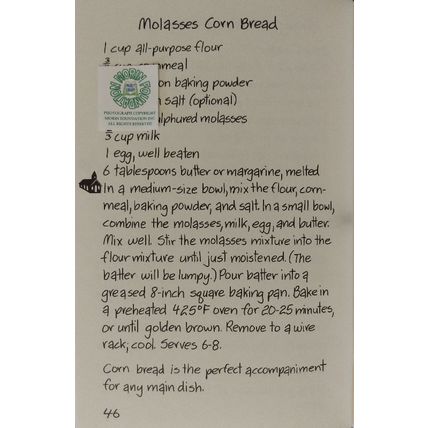 Molasses Corn Bread
1 cup all-purpose flour
meal
baking powder
salt (optional)
molasses
cup milk
1 egg, well beaten
6 tablespoons butter or margarine, melted
In a medium-size bowl, mix the flour, corn-
meal, baking powder, and salt. In a small bowl,
combine the molasses, milk, egg, and butter.
Mix well. Stir the molasses mixture into the
flour mixture until just moistened. (The
batter will be lumpy.) Pour batter into a
greased 8-inch square baking pan. Bake in
a preheated 425°F oven for 20-25 minutes,
or until golden brown. Remove to a wire
rack; cool. Serves 6-8.
Corn bread is the perfect accompaniment
for any main dish.
46
MORIN FOUNDATION
PHOTOGRAPH COPYRIGHT
MORIN FOUNDATION INC
ALL RIGHTS RESERVED